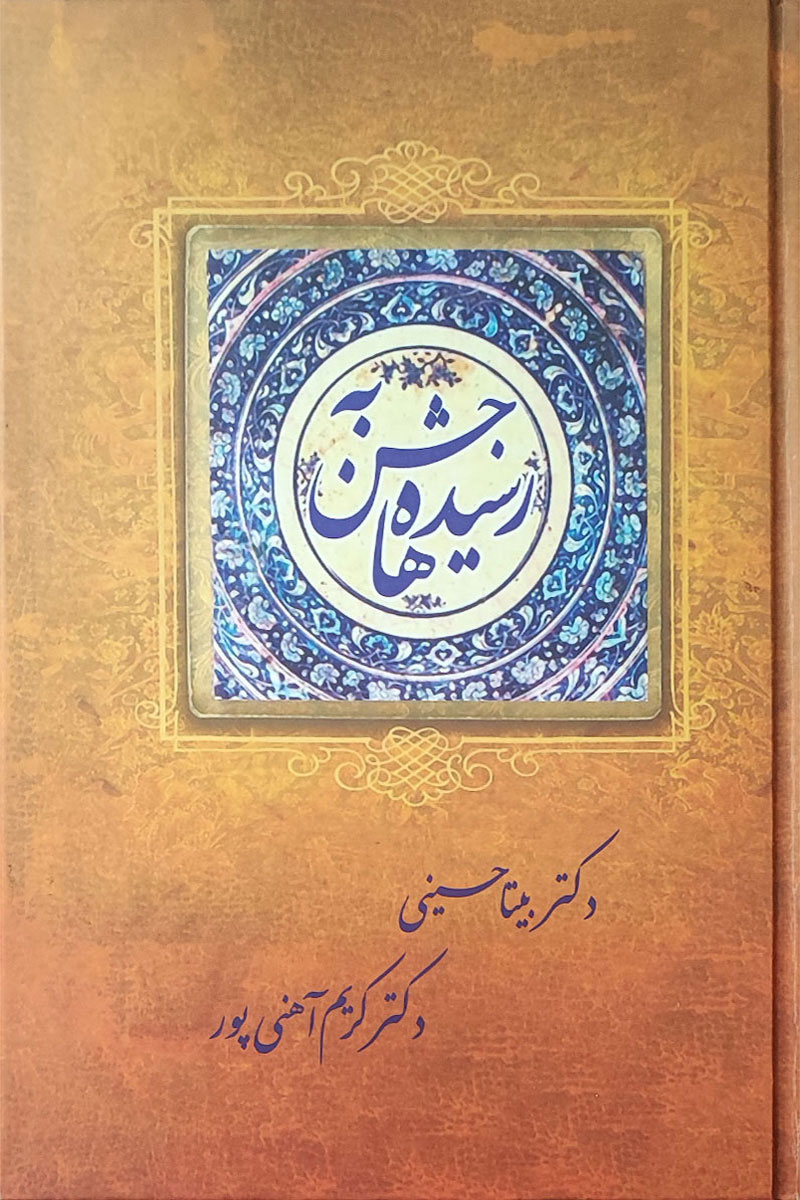 جشن به
رسیده ها
دکتر بیتا حسینی
دکتر کریم آهنی پور